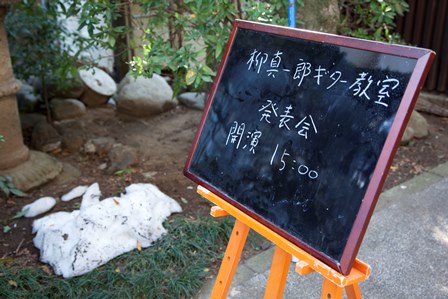 柳真一郎ギター教室
発表会
開演 15:00